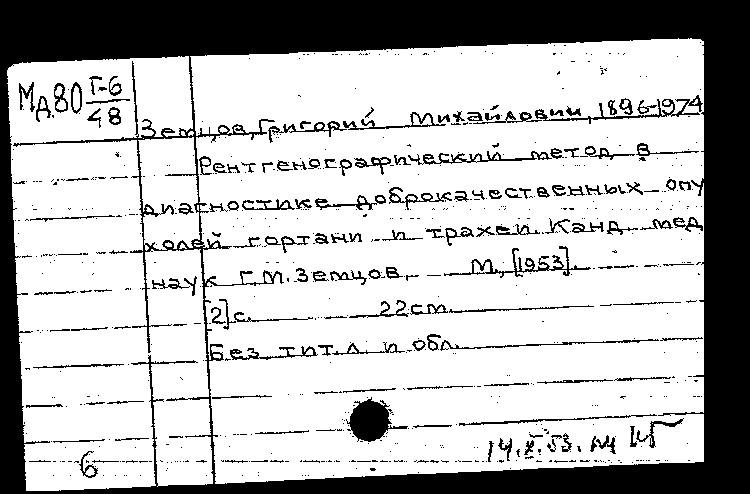 Мд80 Г-6
48
Земцов, Григорий Михайлович, 1896-1974
Рентгенографический метод в
диагностике доброкачественных опу
холей гортани и трахеи. Канд. мед
наук Г.М. Земцов. М., [1953].
[2] с. 22 cm.
Без тит. л. и обл.
14.X.53.
6